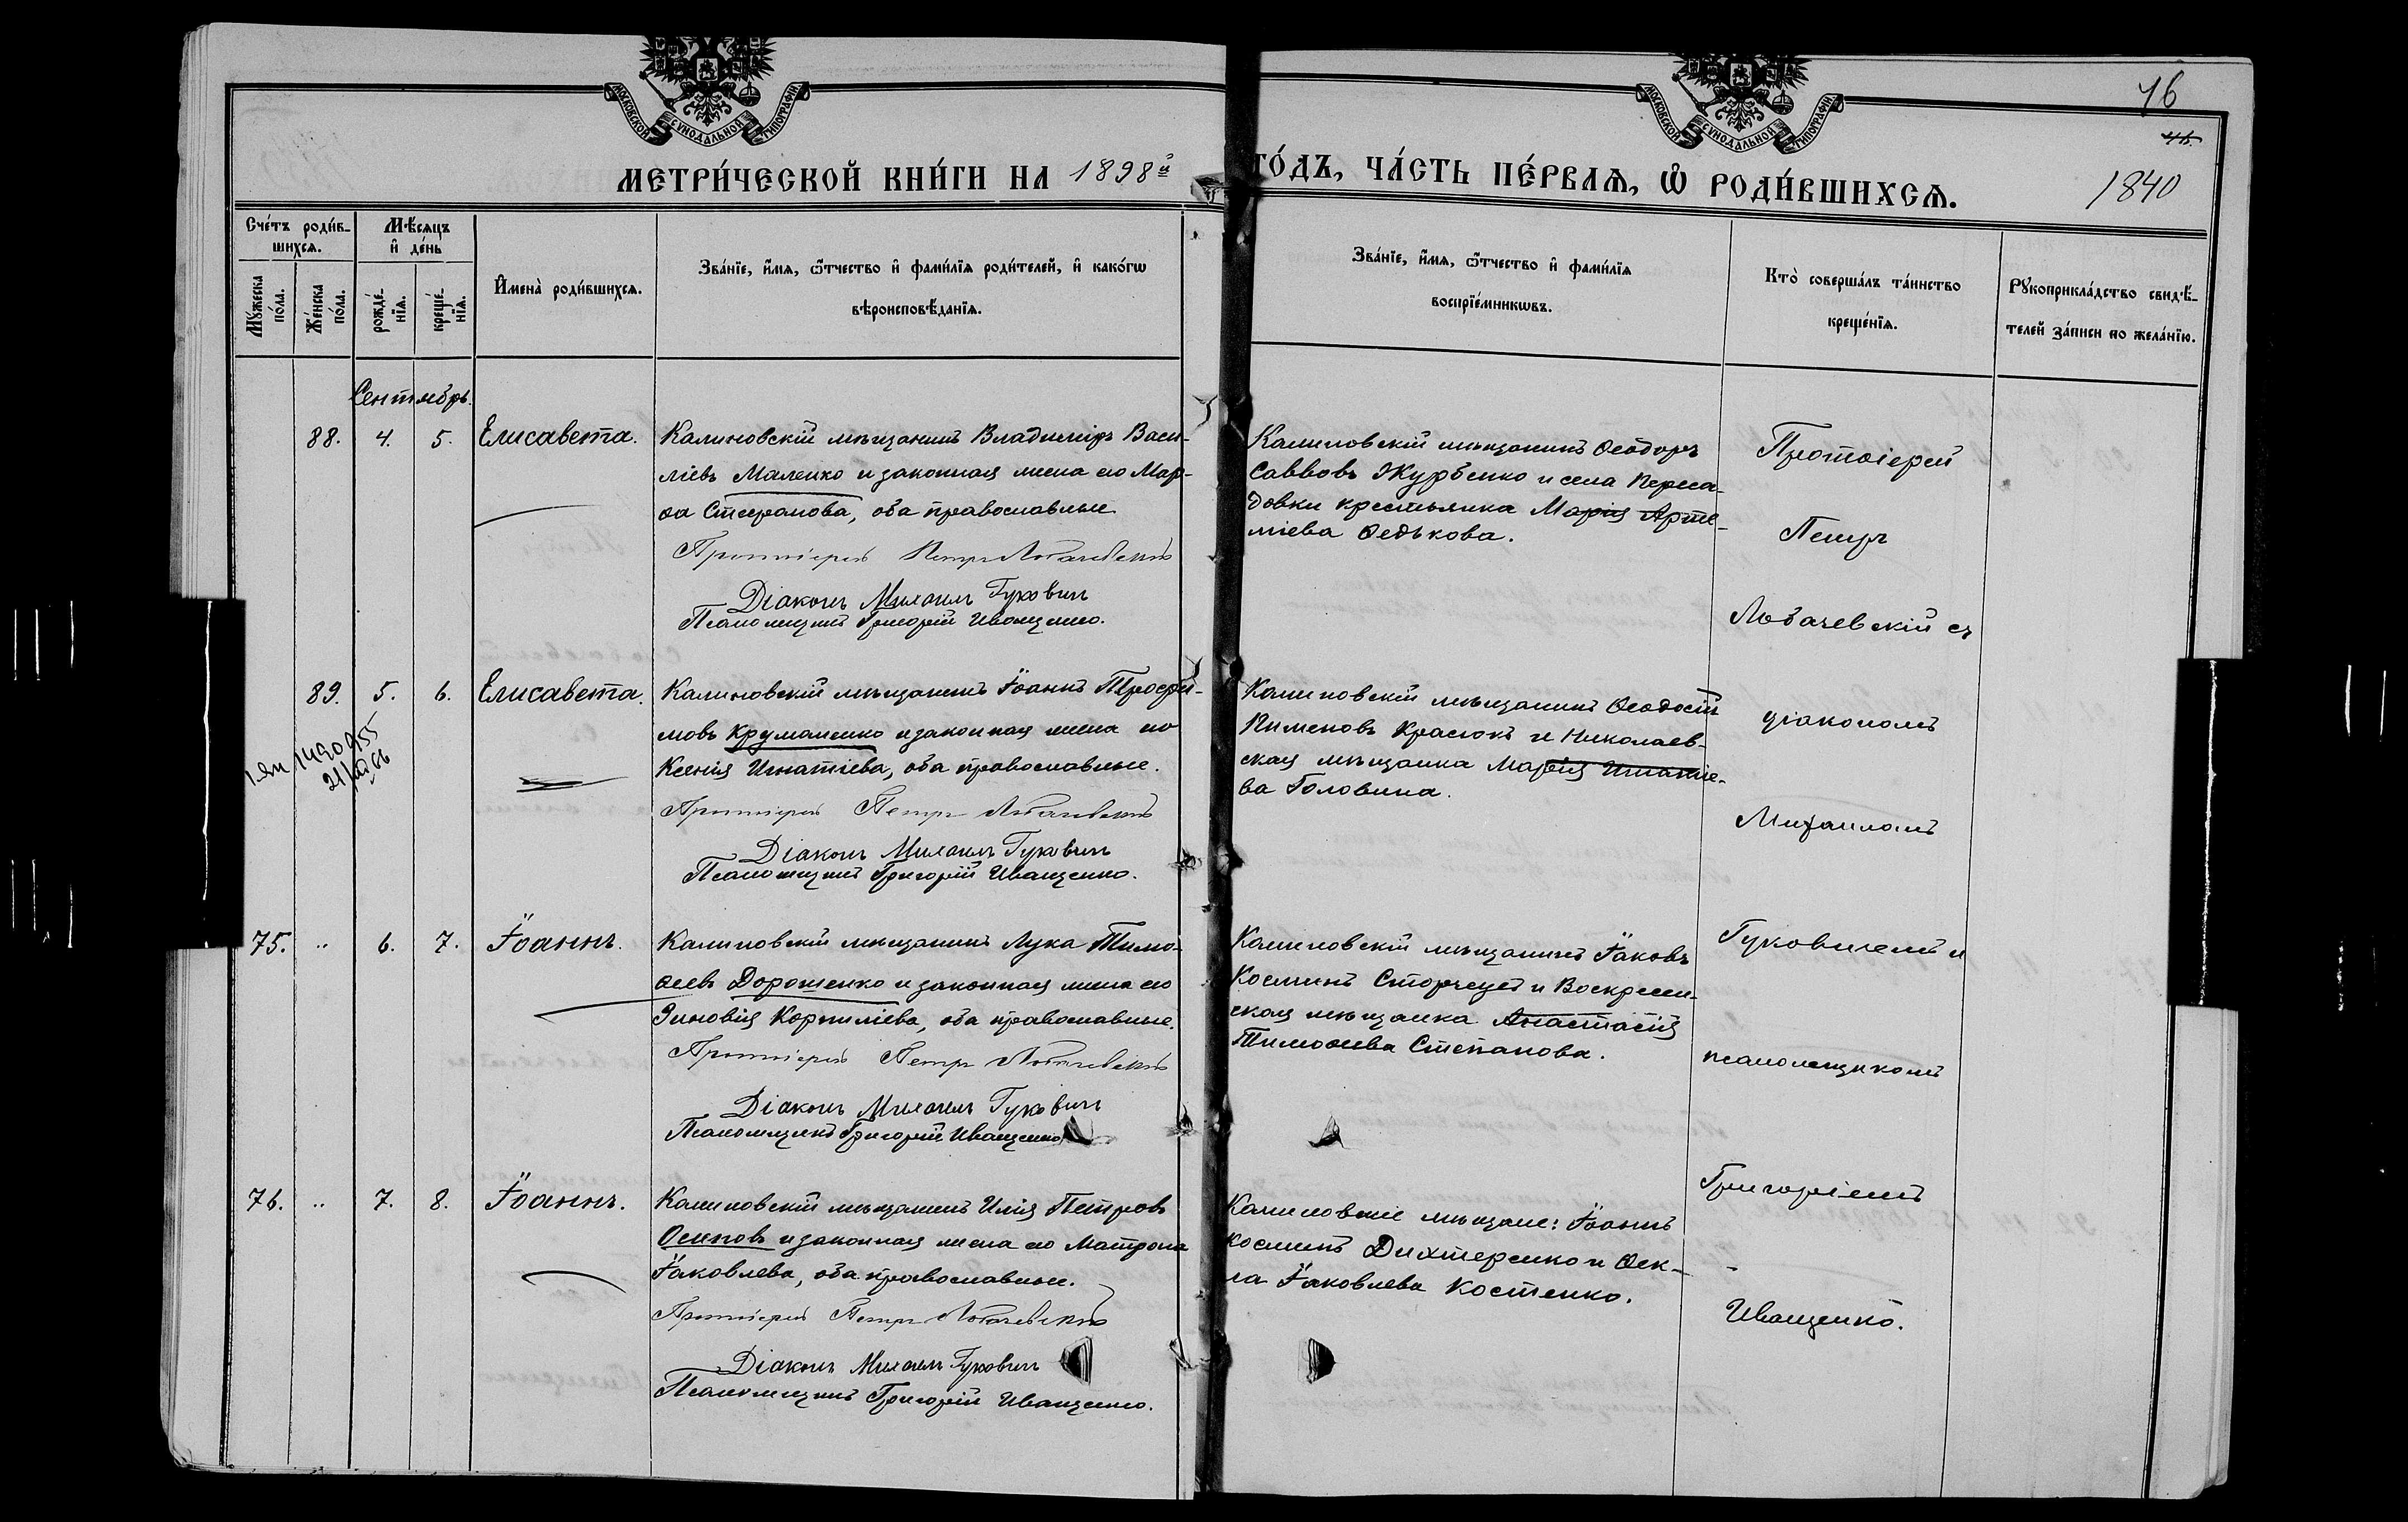 МОСКОВСКОЙ СѴНОДАЛЬНОЙ ТИПОГРАФІИ
МОСКОВСКОЙ СѴНОДАЛЬНОЙ ТИПОГРАФІИ
46
1840
МЕТРИ́ЧЕСКОЙ КНИ́ГИ НА 1898й ГО́ДЪ, ЧА́СТЬ ПЕ́РВАѦ, Ѡ РОДИ́ВШИХСѦ.
Сче́тъ роди́в-
шихсѧ.
Мꙋ́жеска по́ла.
Же́нска по́ла.
Мѣ́сѧцъ
и҆ де́нь
рожде́-
нїѧ.
креще́-
нїѧ.
И҆мена̀ роди́вшихсѧ.
Зва́нїе, и҆́мѧ, ѻ҆́тчество и҆ фами́лїѧ роди́телей, и҆ како́гѡ
вѣроисповѣ́данїѧ.
Зва́нїе, и҆́мѧ, ѻ҆́тчество и҆ фами́лїѧ
воспрїе́мникѡвъ.
Кто̀ соверша́лъ та́инство
креще́нїѧ.
Рꙋкоприкла́дство свидѣ́-
телей за́писи по жела́нїю.
Сентябрь.
88. 4. 5. Елисавета.
Калиновскій мѣщанинъ Владиміръ Васи-
ліевъ Маленко и законная жена его Мар-
ѳа Стефанова, оба православные
Протоіерей Петръ Лобачевскій
Діаконъ Михаилъ Гуковичъ
Псаломщикъ Григорій Иващенко.
Калиновскій мѣщанинъ Ѳеодоръ
Саввовъ Журбенко и села Переса-
довки крестьянка Марія Арте-
міева Ѳедькова.
89. 5. 6. Елисавета.
Калиновскій мѣщанинъ Іоаннъ Трофи-
мовъ Круманенко и законная жена его
Ксенія Игнатіева, оба православные.
Протоіерей Петръ Лобачевскій
Діаконъ Михаилъ Гуковичъ
Псаломщикъ Григорій Иващенко.
Калиновскій мѣщанинъ Ѳеодосій
Пименовъ Красюкъ и Николаев-
ская мѣщанка Марія Игнатіе-
ва Головина.
75. " 6. 7. Іоаннъ.
Калиновскій мѣщанинъ Лука Тимо-
ѳеевъ Дорошенко и законная жена его
Зиновія Корниліева, оба православные.
Протоіерей Петръ Лобачевскій
Діаконъ Михаилъ Гуковичъ
Псаломщикъ Григорій Иващенко
Калиновскій мѣщанинъ Іаковъ
Косминъ Сторчеусъ и Воскресен-
ская мѣщанка Анастасія
Тимоѳеева Степанова.
76. " 7. 8. Іоаннъ.
Калиновскій мѣщанинъ Илія Петровъ
Осиповъ и законная жена его Матрона
Іаковлева, оба православные.
Протоіерей Петръ Лобачевскій
Діаконъ Михаилъ Гуковичъ
Псаломщикъ Григорій Иващенко.
Калиновскіе мѣщане: Іоаннъ
Косминъ Дихтеренко и Ѳек-
ла Іаковлева Костенко.
Протоіерей
Петръ
Лобачевскій съ
діакономъ
Михаиломъ
Гуковичемъ и
псаломщикомъ
Григоріемъ
Иващенко.